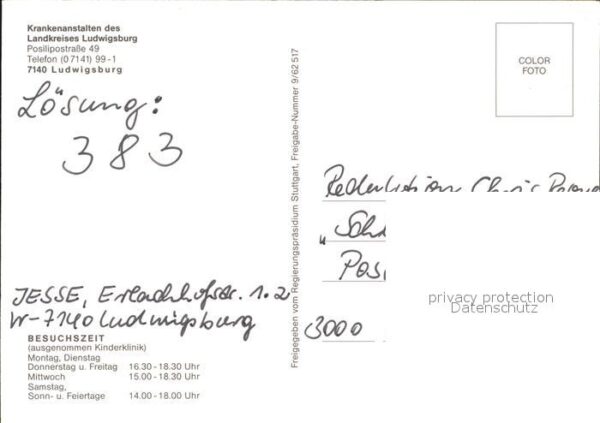 Krankenanstalten des
Landkreises Ludwigsburg
Posilipostraße 49
Telefon (0 71 41) 99-1
7140 Ludwigsburg
COLOR
FOTO
Lösung:
383
Freigegeben vom Regierungspräsidium Stuttgart, Freigabe-Nummer 9/62 517
Redaktion Chris
"
Pos
3000
JESSE, Erlachhofstr. 1.2
W-7140 Ludwigsburg
privacy protection
Datenschutz
BESUCHSZEIT
(ausgenommen Kinderklinik)
Montag, Dienstag
Donnerstag u. Freitag 16.30-18.30 Uhr
Mittwoch 15.00-18.30 Uhr
Samstag,
Sonn- u. Feiertage 14.00-18.00 Uhr